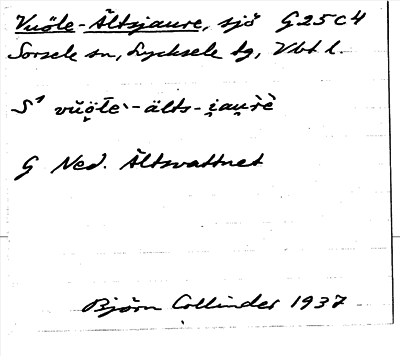 Vuöle-Ältsjaure, sjö G25C4
Sorsele sn, Lycksele tg, Vbt l.
S¹ vŭö̭le`-älts-i̯au̯rè
G Ned. Ältsvattnet
Björn Collinder 1937